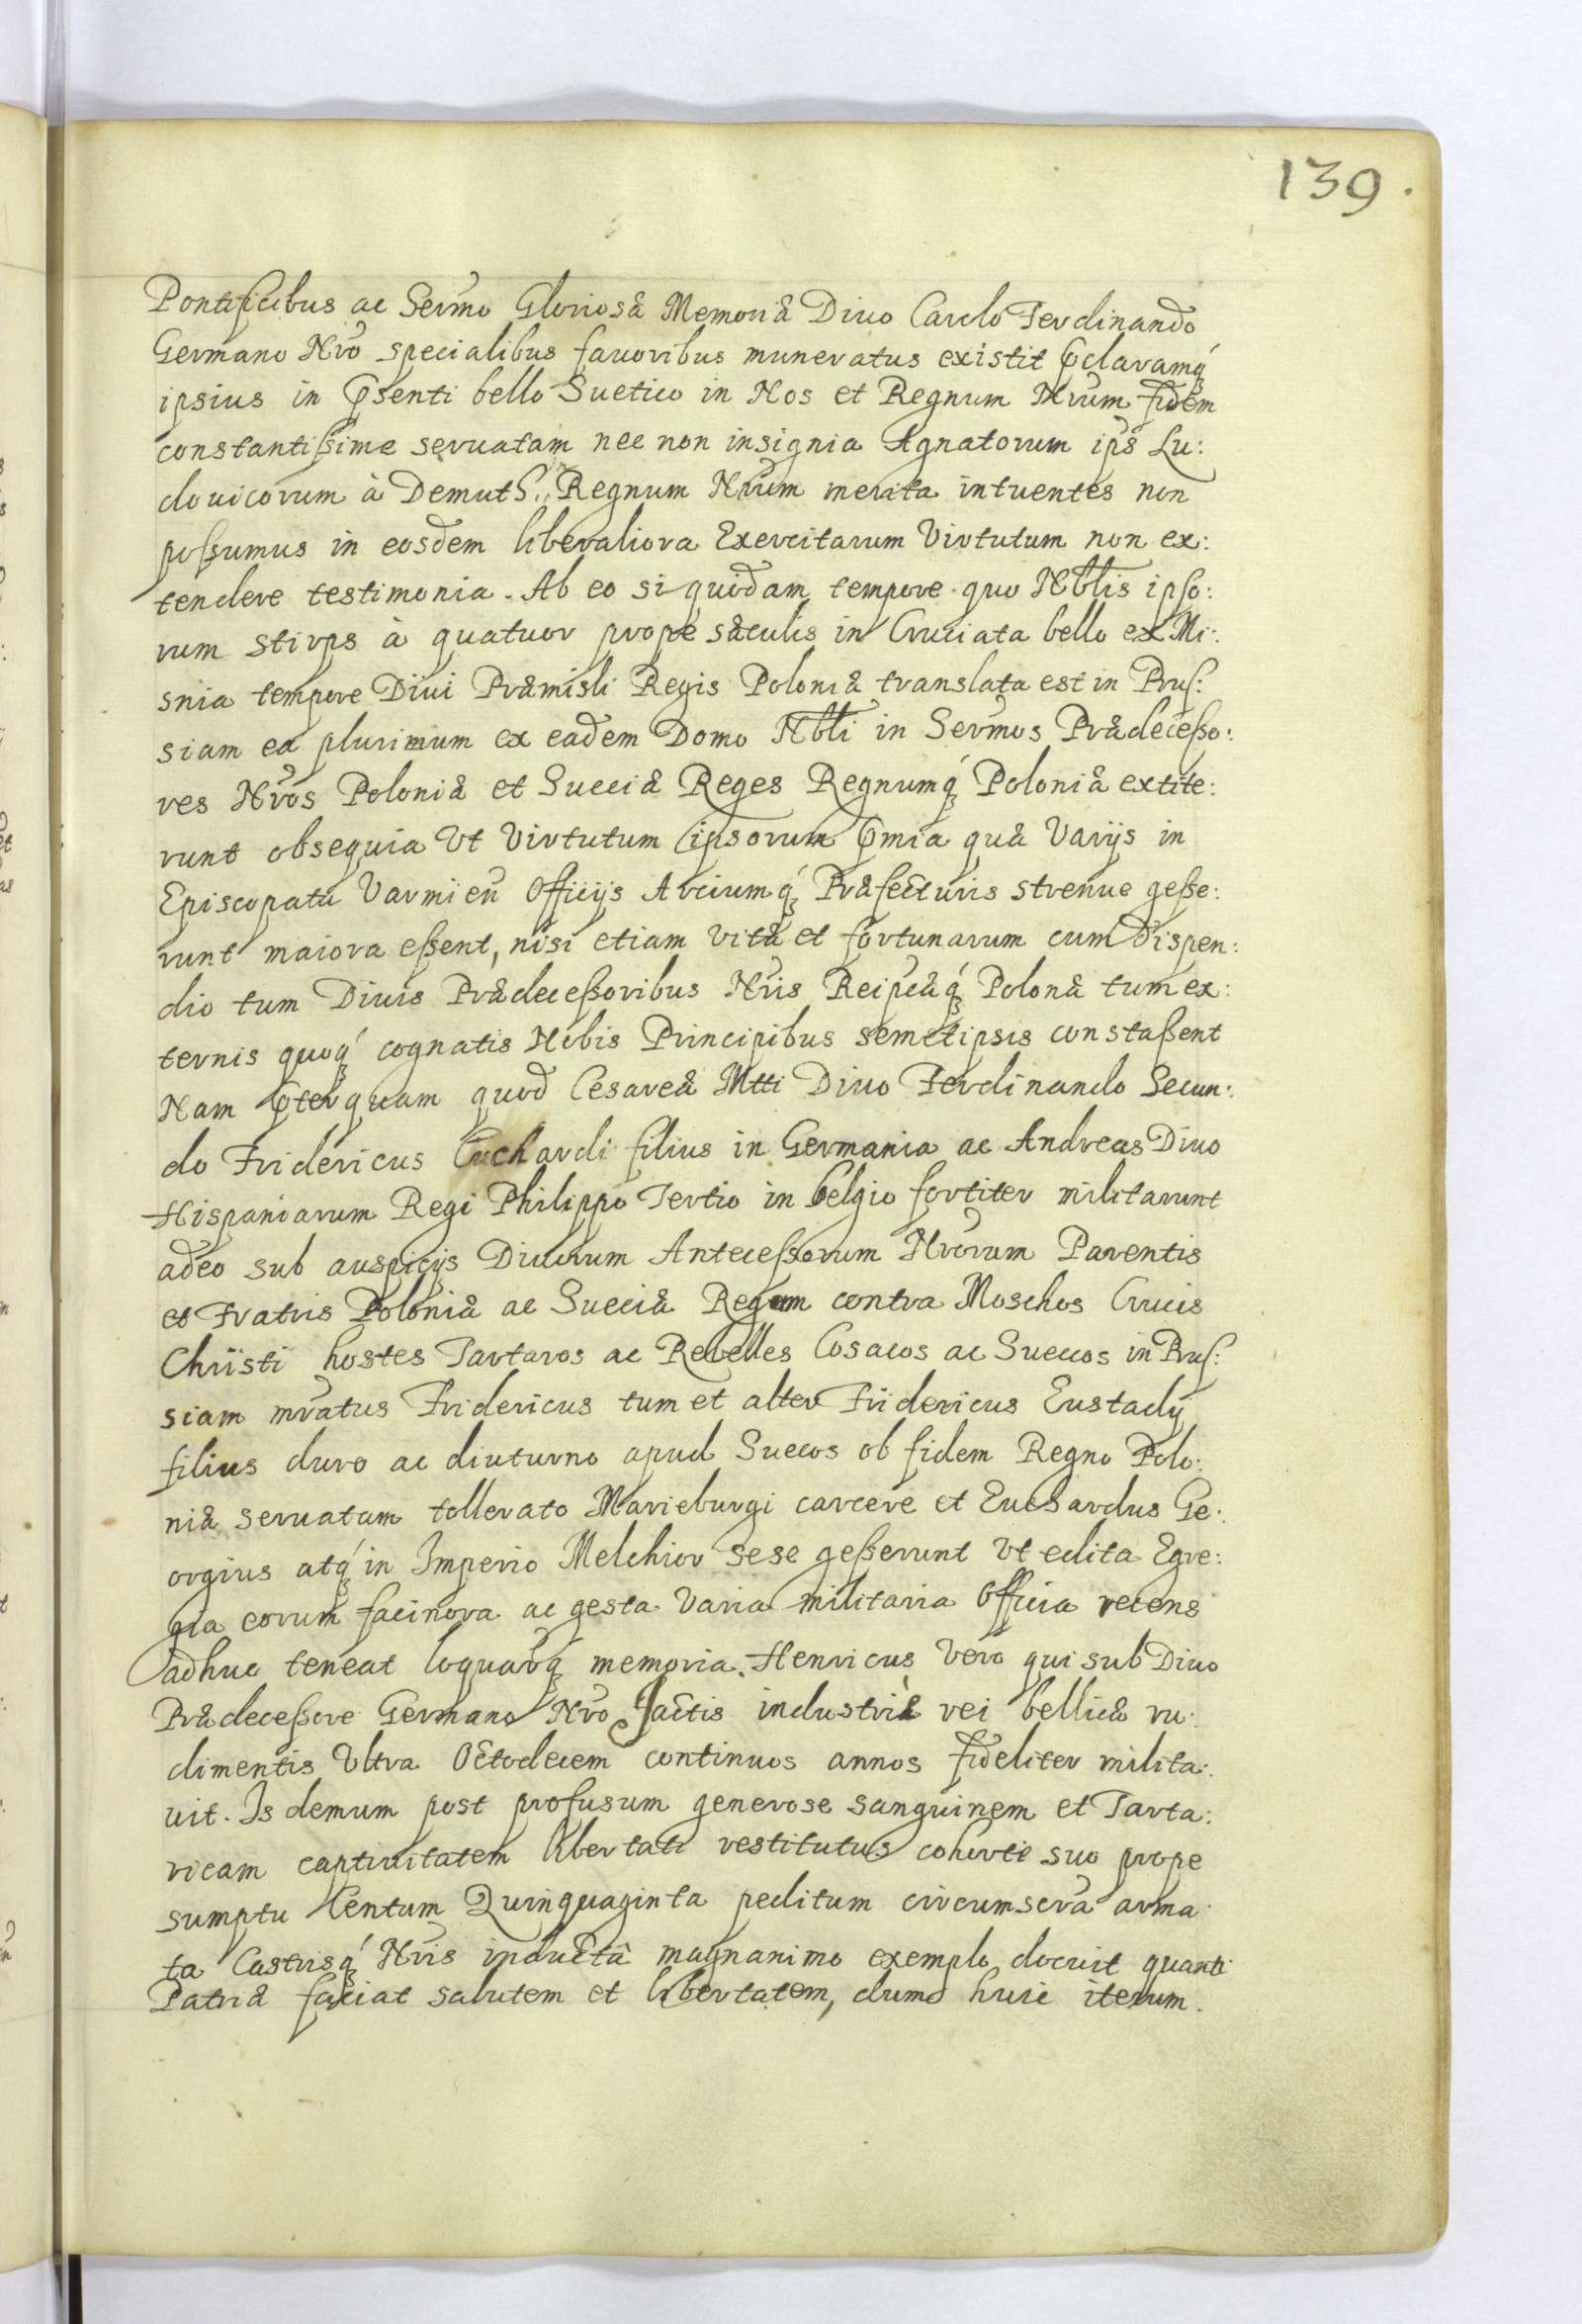 139.
Pontificibus ac Sermo Gloriosæ Memoriæ Diuo Carolo Ferdinando
Germano Nro specialibus fauoribus muneratus existit pclaramq́
ipsius in psenti bello Suetico in Nos et Regnum Nrum fidem
constantißime seruatam nec non insignia Agnatorum ips Lu:
douicorum à Demuth in Regnum Nrum merita intuentes non
poßumus in eosdem liberaliora Exercitarum Virtutum non ex:
tendere testimonia. Ab eo siquidam tempore quo Nbtis ipso:
rum stirps à quatuor prope sæculis in Cruciata bello ex Mi:
snia tempore Diui Præmisli Regis Poloniæ translata est in Prus:
siam ea plurimum ex eadem Domo Nbti in Sermos Prædeceßo:
res Nros Poloniæ et Sueciæ Reges Regnumq́ Poloniæ extite:
runt obsequia Vt Virtutum ipsorum pmia quæ Varijs in
Episcopatu Varmien Officijs Arciumq́ Præfecturis strenue geße:
runt maiora eßent, nisi etiam vitæ et fortunarum cum dispen:
dio tum Diuis Prædeceßoribus Nris Reipcæq́ Polonæ tum ex:
ternis quoq́ cognatis Nobis Principibus semetipsis constaßent
Nam pterquam quod Cesareæ Mtti Diuo Ferdinando Secun:
do Fridericus Euchardi filius in Germania ac Andreas Diuo
Hispaniarum Regi Philippo Tertio in belgio fortiter militarunt
adeo sub auspicijs Diuorum Anteceßorum Nrorum Parentis
et Fratris Poloniæ ac Sueciæ Regum contra Moschos Crucis
Christi hostes Tartaros ac Rebelles Cosacos ac Suecos in Prus:
siam mratus Fridericus tum et alter Fridericus Eustachij
filius duro ac diuturno apud Suecos ob fidem Regno Polo:
niæ seruatam tollerato Marieburgi carcere et Euchardus Ge:
orgius atq́ in Imperio Melchior sese geßerunt Vt edita Egre:
gia eorum facinora ac gesta Varia militaria Officia recens
adhuc teneat loquarq memoria. Henricus Vero qui sub Diuo
Prædeceßore Germano Nro Jactis industriæ rei bellicæ ru:
dimentis Vltra Octodecem continuos annos fideliter milita:
uit. Is demum post profusum generose sanguinem et Tarta:
ricam captiuitatem libertati restitutus cohorte suo prope
sumptu Centum Quinquaginta peditum circumscra arma
ta Castrisq́ Nris inductâ magnanimo exemplo docuit quanti
Patriæ faciat salutem et libertatem, dum huic iterum.